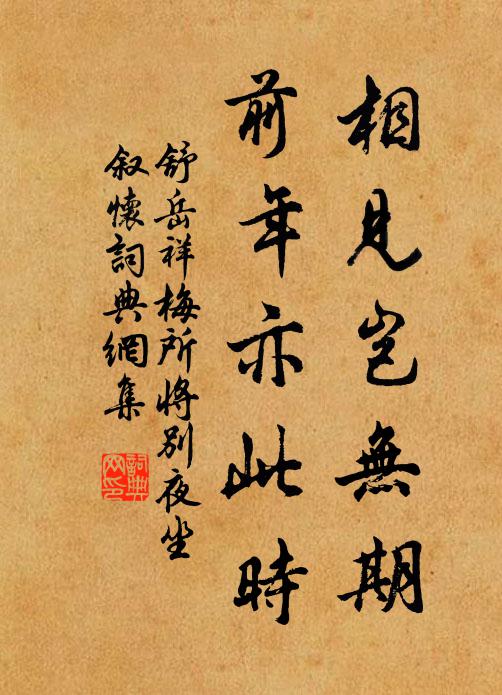 相見豈無期
前年亦此時
舒岳祥梅所將別夜坐
叙懷詞典網集
詞典網印